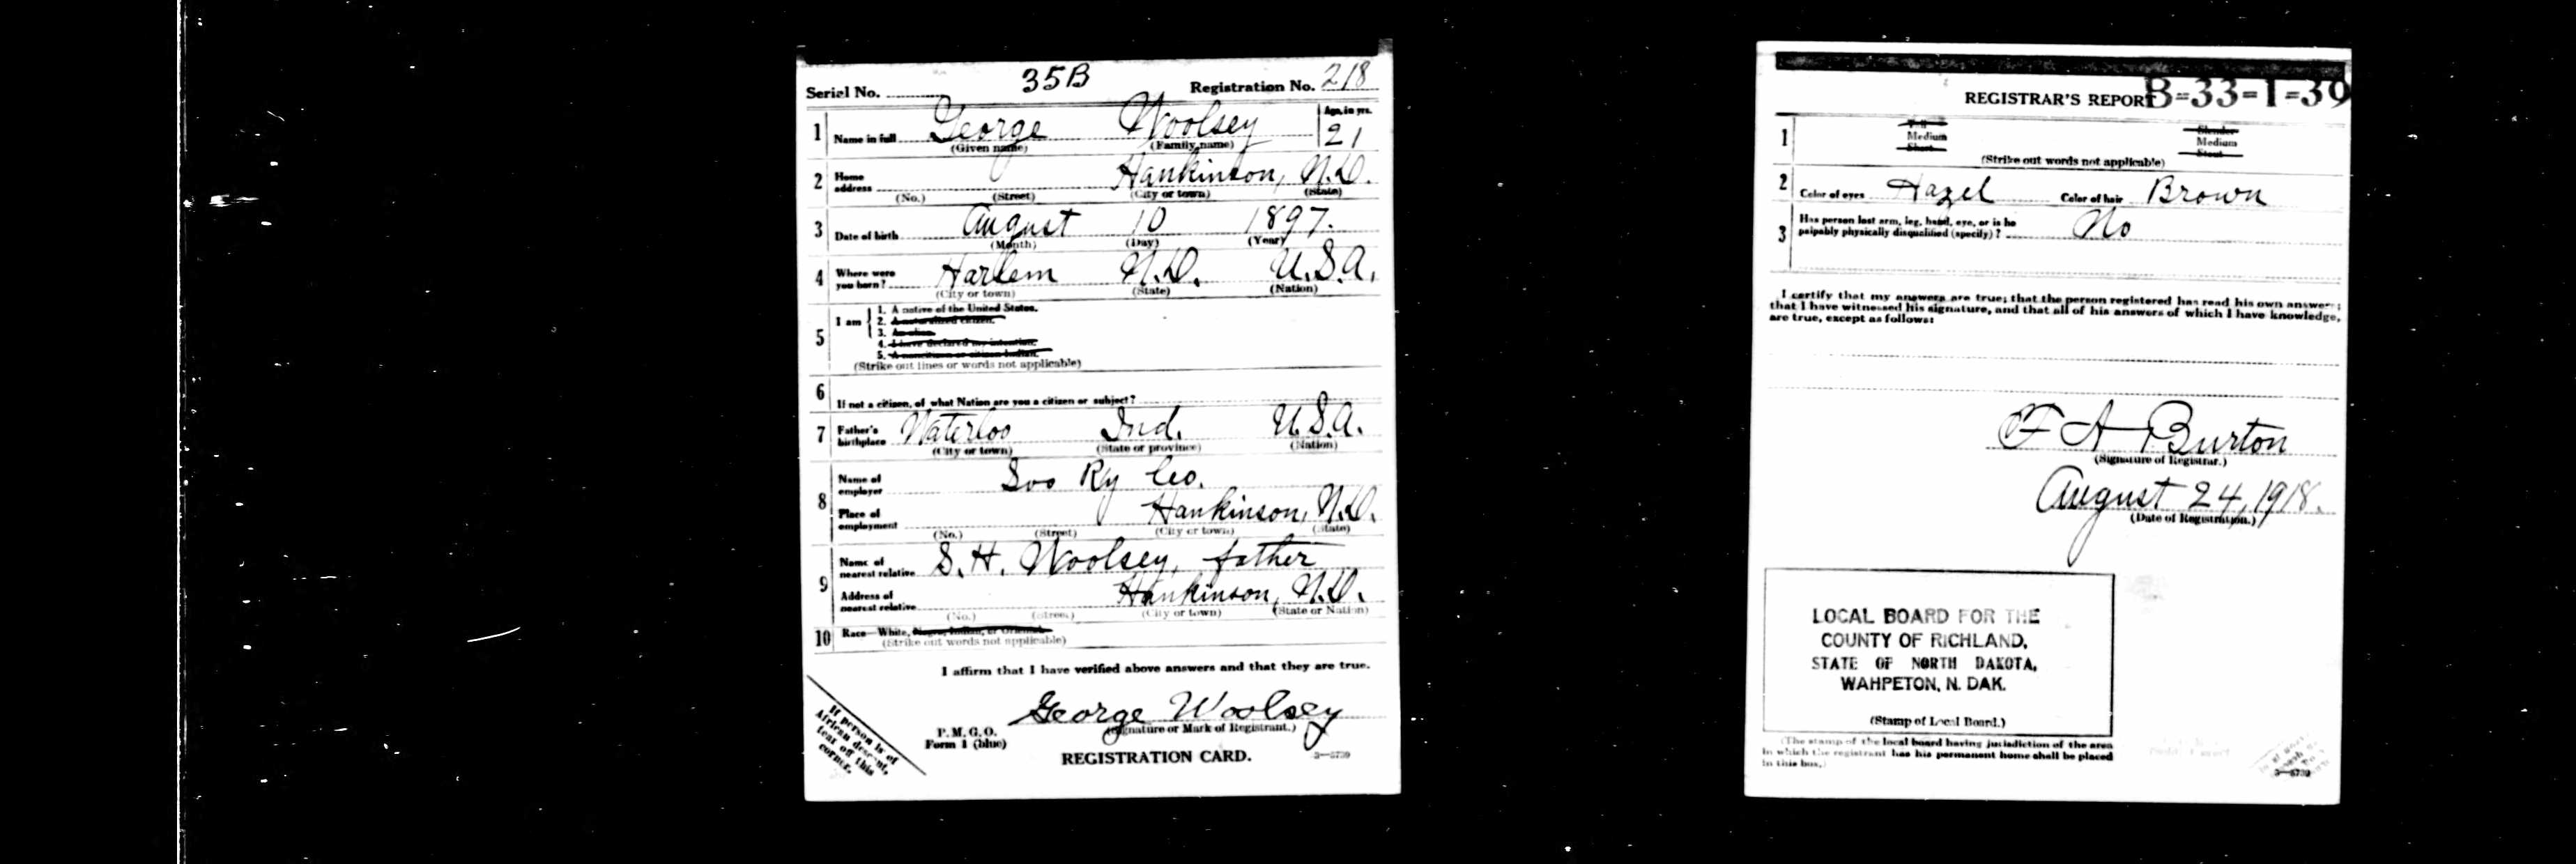 35B
Serial No. Registration No. 218
1 Name in full George Woolsey Age, in yrs. 21
(Given name) (Family name)
2 Home address Hankinson, N.D.
(No.) (Street) (City or town) (State)
3 Date of birth August 10 1897.
(Month) (Day) (Year)
4 Where were you born? Harlem N.D. U.S.A.
(City or town) (State) (Nation)
5 I am
1. A native of the United States.
2. A naturalized citizen.
3. An alien.
4. I have declared my intention.
5. A noncitizen or citizen Indian.
(Strike out lines or words not applicable)
6 If not a citizen, of what Nation are you a citizen or subject?
7 Father's birthplace Waterloo Ind. U.S.A.
(City or town) (State or province) (Nation)
8 Name of employer Soo Ry Co.
Place of employment Hankinson, N.D.
(No.) (Street) (City or town) (State)
9 Name of nearest relative S. H. Woolsey, father
Address of nearest relative Hankinson, N.D.
(No.) (Street) (City or town) (State or Nation)
10 Race—White, Negro, Indian, or Oriental
(Strike out words not applicable)
I affirm that I have verified above answers and that they are true.
George Woolsey
(Signature or Mark of Registrant.)
P. M. G. O.
Form 1 (blue)
REGISTRATION CARD.
3—5739
If person is of
African descent,
tear off this
corner.
REGISTRAR'S REPORT B-33-1-39
1 Tall Slender
Medium Medium
Short Stout
(Strike out words not applicable)
2 Color of eyes Hazel Color of hair Brown
3 Has person lost arm, leg, hand, eye, or is he
palpably physically disqualified (specify)? No
I certify that my answers are true; that the person registered has read his own answers;
that I have witnessed his signature, and that all of his answers of which I have knowledge,
are true, except as follows:
F A Burton
(Signature of Registrar.)
August 24, 1918.
(Date of Registration.)
LOCAL BOARD FOR THE
COUNTY OF RICHLAND,
STATE OF NORTH DAKOTA,
WAHPETON, N. DAK.
(Stamp of Local Board.)
(The stamp of the local board having jurisdiction of the area
in which the registrant has his permanent home shall be placed
in this box.)
3—5739